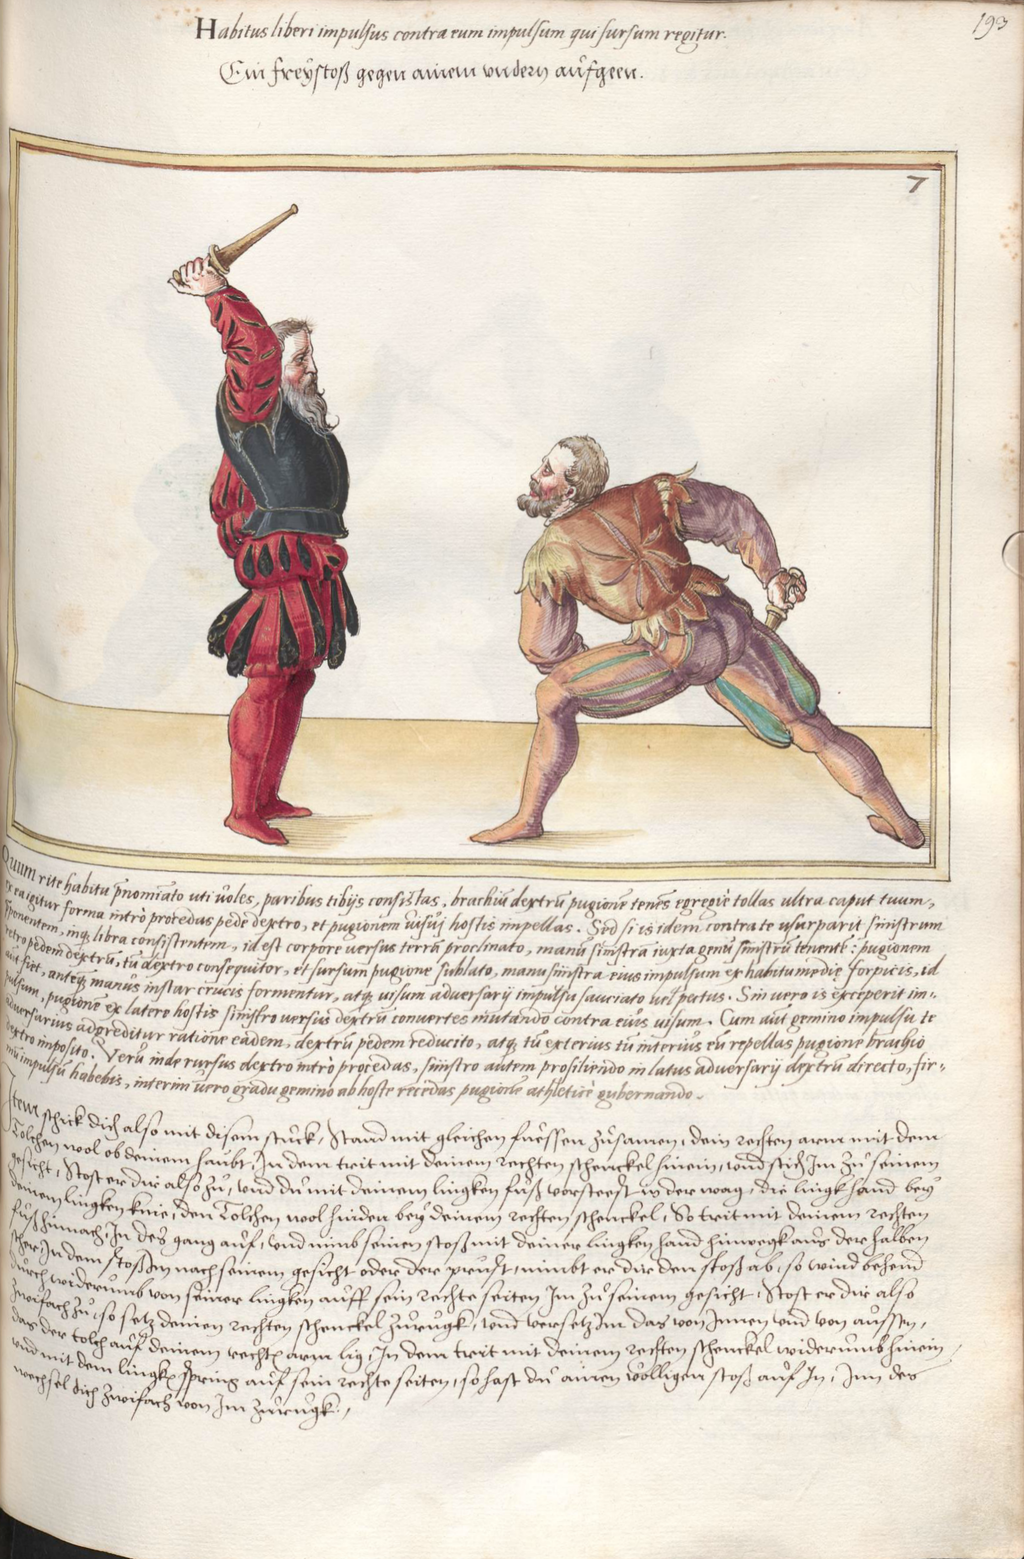 193
Habitus liberi impulsus contra eum impulsum qui sursum regitur.
Ein freÿstoß gegen ainem undern aufgeen.
7
Quum rite habitu p̄nomiāto uti uoles, paribus tibijs consistas, brachiū dextrū pugionē tenēs egregiè tollas ultra caput tuum,
ex ea igitur forma intrò procedas pede dextro, et pugionem uisuj hostis impellas. Sed si is idem contra te usurparit sinistrum
pponentem, inq. libra consistentem, id est corpore uersus terrā proclinato, manu sinistra iuxta genu sinistrū tenente: pugionem
retro pedem dextrū, tu dextro consequitor, et sursum pugione sublato, manu sinistra eius impulsum ex habitu mediæ forpicis, id
aūt fiet, anteq̄ manus instar crucis formentur, atq. uisum aduersarij impulsu sauciato uel pectus. Sin uero is exceperit im-
pulsum, pugionē ex latere hostis sinistro uersus dextrū conuertes mutando contra eius uisum. Cum aut gemino impulsu te
aduersarius adgreditur ratione eadem, dextrū pedem reducito, atq. tū exterius tū interius eū repellas pugione brachio
dextro imposito. Verū inde rursus dextro intrò procedas, sinistro autem prosiliendo in latus aduersarij dextrū directo, fir-
mū impulsū habebis, interim uero gradu gemino ab hoste recedas pugionē athleticè gubernando.
Item schick dich also mit disem stuck, Stand mit gleichen fuessen zusamen, dein rechten arm mit dem
Tolchen wol ob deinem haubt, In dem trit mit deinem rechten schenckel hinein, und stich Im zu seinem
gesicht, Stost er dir also zu, und du mit deinem lingken fuß vorsteest in der wag, die lingk hand beÿ
deinem lingken knie, den Tolchen wol hinden beÿ deinem rechten schenckel, So trit mit deinem rechten
fuß hinnach, In des gang auf, und nimb seinen stoß mit deiner lingken hand hinweck aus der halben
scher, In dem stoß Im nach seinem gesicht oder der prust, nimbt er dir den stoß ab, so wind behend
durch widerumb von seiner lingken auff sein rechte seiten Im zu seinem gesicht, Stost er dir also
zwifach zu, so setz deinen rechten schenckel zurugk, und versetz Im das von Innen und von aussen,
das der tolch auf deinem rechtn arm lig, In dem trit mit deinem rechten schenckel widerumb hinein,
und mit dem lingkn spring auf sein rechte seiten, so hast du ainen völligen stoß auf In, Inn des
wechsel dich zwifach von Im zurugk.